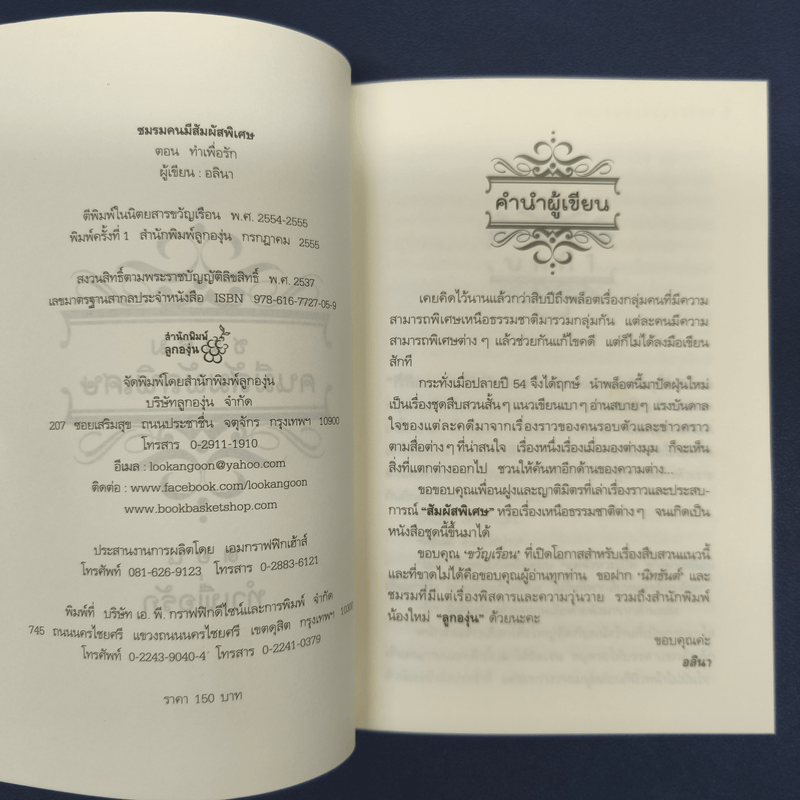 ชมรมคนมีสัมผัสพิเศษ
ตอน ทำเพื่อรัก
ผู้เขียน : อลินา
ตีพิมพ์ในนิตยสารขวัญเรือน พ.ศ. 2554-2555
พิมพ์ครั้งที่ 1 สำนักพิมพ์ลูกองุ่น กรกฎาคม 2555
สงวนสิทธิ์ตามพระราชบัญญัติลิขสิทธิ์ พ.ศ. 2537
เลขมาตรฐานสากลประจำหนังสือ ISBN 978-616-7727-05-9
สำนักพิมพ์
ลูกองุ่น
จัดพิมพ์โดยสำนักพิมพ์ลูกองุ่น
บริษัทลูกองุ่น จำกัด
207 ซอยเสริมสุข ถนนประชาชื่น จตุจักร กรุงเทพฯ 10900
โทรสาร 0-2911-1910
อีเมล : lookangoon@yahoo.com
ติดต่อ : www.facebook.com/lookangoon
www.bookbasketshop.com
ประสานงานการผลิตโดย เอมกราฟฟิกเฮ้าส์
โทรศัพท์ 081-626-9123 โทรสาร 0-2883-6121
พิมพ์ที่ บริษัท เอ. พี. กราฟฟิกดีไซน์และการพิมพ์ จำกัด
745 ถนนนครไชยศรี แขวงถนนนครไชยศรี เขตดุสิต กรุงเทพฯ 10300
โทรศัพท์ 0-2243-9040-4 โทรสาร 0-2241-0379
ราคา 150 บาท
คำนำผู้เขียน
เคยคิดไว้นานแล้วกว่าสิบปีถึงพล็อตเรื่องกลุ่มคนที่มีความ
สามารถพิเศษเหนือธรรมชาติมารวมกลุ่มกัน แต่ละคนมีความ
สามารถพิเศษต่าง ๆ แล้วช่วยกันแก้ไขคดี แต่ก็ไม่ได้ลงมือเขียน
สักที
กระทั่งเมื่อปลายปี 54 จึงได้ฤกษ์ นำพล็อตนี้มาปัดฝุ่นใหม่
เป็นเรื่องชุดสืบสวนสั้น ๆ แนวเขียนเบา ๆ อ่านสบาย ๆ แรงบันดาล
ใจของแต่ละคดีมาจากเรื่องราวของคนรอบตัวและข่าวคราว
ตามสื่อต่าง ๆ ที่น่าสนใจ เรื่องหนึ่งเรื่องเมื่อมองต่างมุม ก็จะเห็น
สิ่งที่แตกต่างออกไป ชวนให้ค้นหาอีกด้านของความต่าง...
ขอขอบคุณเพื่อนฝูงและญาติมิตรที่เล่าเรื่องราวและประสบ-
การณ์ "สัมผัสพิเศษ" หรือเรื่องเหนือธรรมชาติต่าง ๆ จนเกิดเป็น
หนังสือชุดนี้ขึ้นมาได้
ขอบคุณ 'ขวัญเรือน' ที่เปิดโอกาสสำหรับเรื่องสืบสวนแนวนี้
และที่ขาดไม่ได้คือขอบคุณผู้อ่านทุกท่าน ขอฝาก 'นิทธันต์' และ
ชมรมที่มีแต่เรื่องพิสดารและความวุ่นวาย รวมถึงสำนักพิมพ์
น้องใหม่ "ลูกองุ่น" ด้วยนะคะ
ขอบคุณค่ะ
อลินา